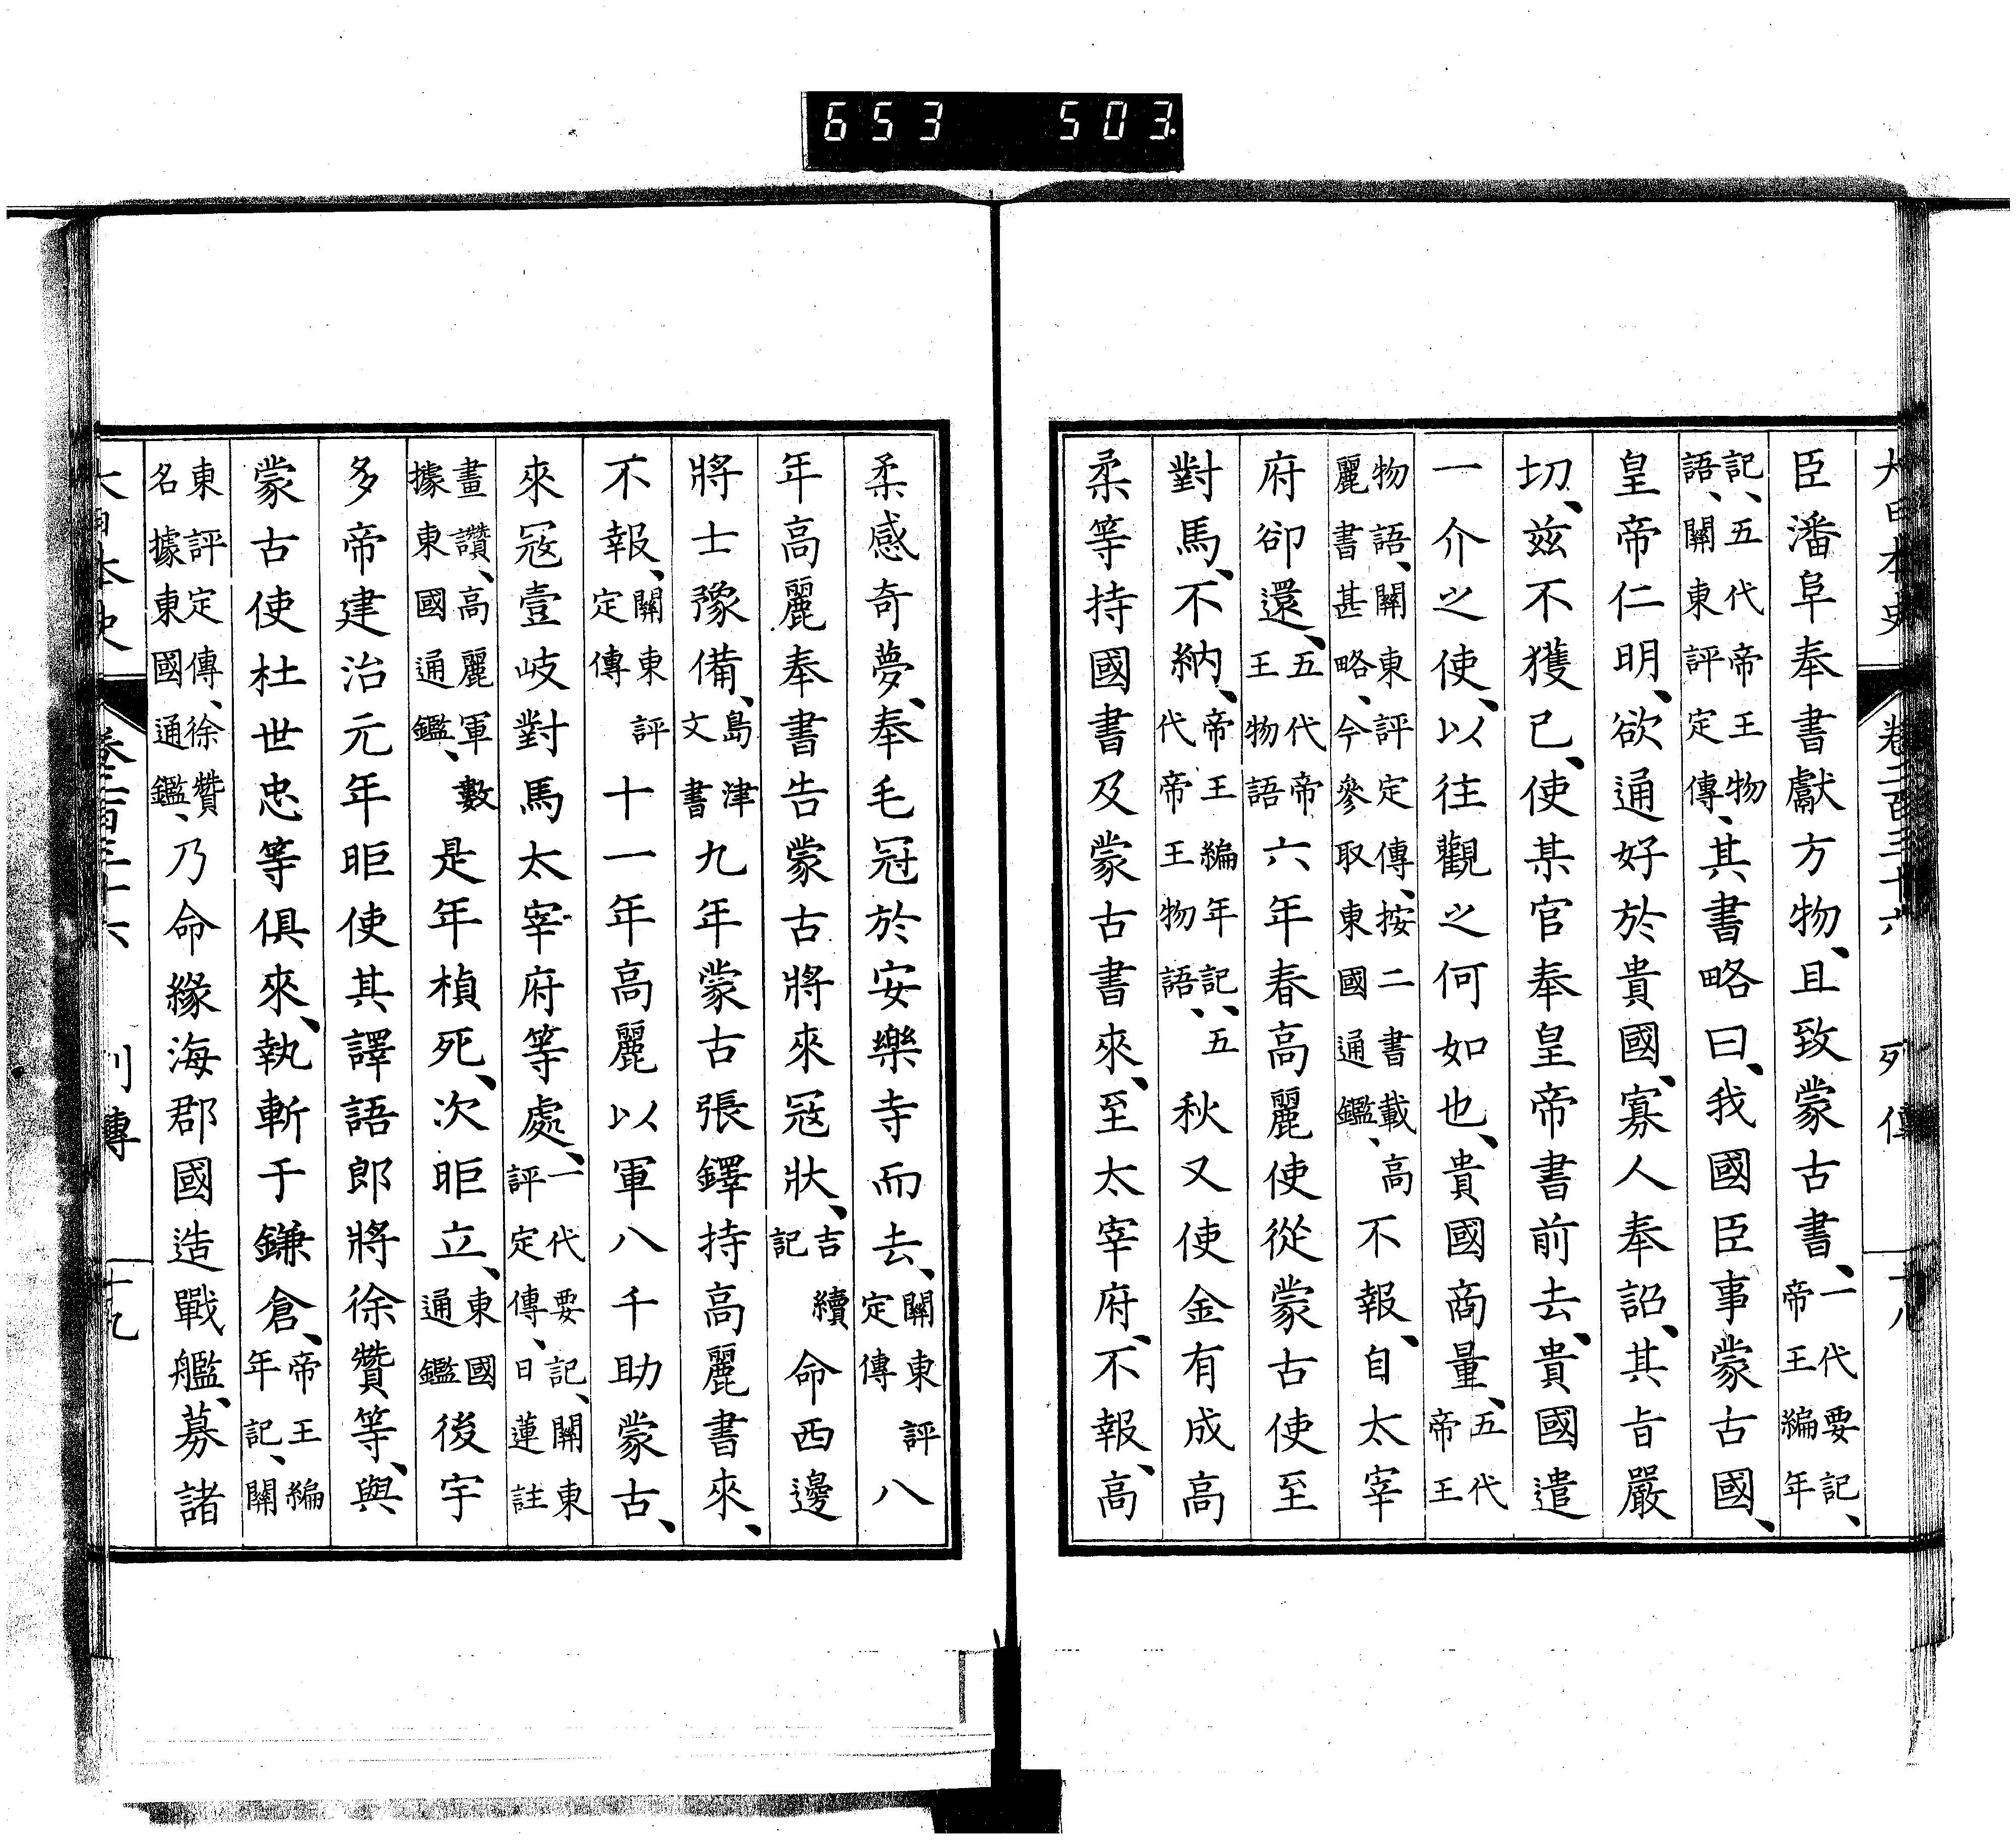 653 503
大日本史 卷二百三十六 列傳 十八
臣潘阜奉書獻方物、且致蒙古書、一代要記、帝王編年
記、五代帝王物語、關東評定傳、其書略曰、我國臣事蒙古國、
皇帝仁明、欲通好於貴國、寡人奉詔、其旨嚴
切、茲不獲已、使某官奉皇帝書前去、貴國遣
一介之使、以往觀之何如也、貴國商量、五代帝王
物語、關東評定傳、按二書載高麗書甚略、今參取東國通鑑、不報、自太宰
府卻還、五代帝王物語六年春高麗使從蒙古使至
對馬、不納、帝王編年記、五代帝王物語、秋又使金有成高
柔等持國書及蒙古書來、至太宰府、不報、高
柔感奇夢、奉毛冠於安樂寺而去、關東評定傳八
年高麗奉書告蒙古將來冦狀、吉續記命西邊
將士豫備、島津文書九年蒙古張鐸持高麗書來、
不報、關東評定傳十一年高麗以軍八千助蒙古、
來冦壹岐對馬太宰府等處、一代要記、關東評定傳、日蓮註
畫讚、高麗軍數據東國通鑑、是年楨死、次昛立、東國通鑑後宇
多帝建治元年昛使其譯語郎將徐贊等、與
蒙古使杜世忠等俱來、執斬于鎌倉、帝王編年記、關
東評定傳、徐贊名據東國通鑑、乃命緣海郡國造戰艦、募諸
大日本史 卷二百三十六 列傳 十九